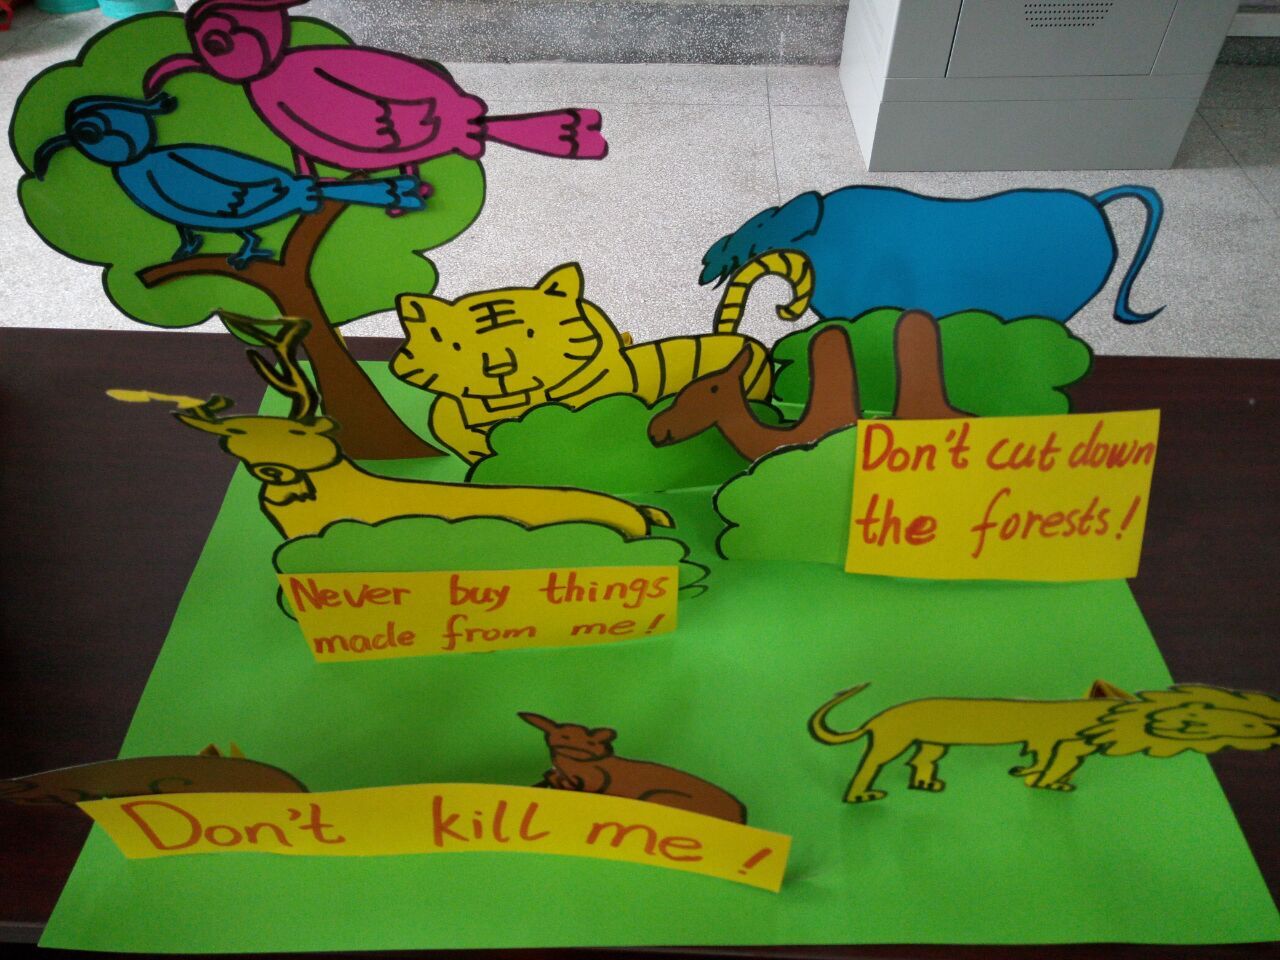 Don't cut down
the forests!
Never buy things
made from me!
Don't kill me!
王